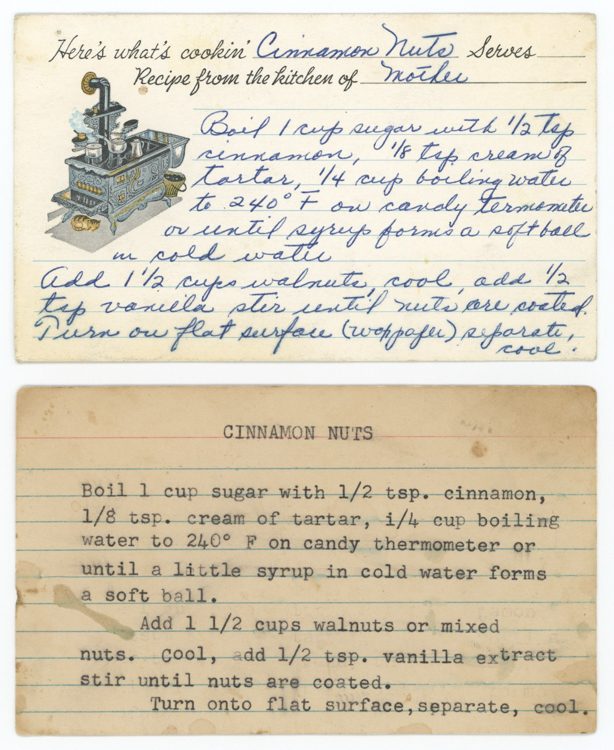 Here's what's cookin' Cinnamon Nuts Serves
Recipe from the kitchen of Mother
Boil 1 cup sugar with 1/2 tsp
cinnamon, 1/8 tsp cream of
tartar, 1/4 cup boiling water
to 240° F on candy termometer
or until syrup forms a soft ball
in cold water
Add 1 1/2 cups walnuts, cool, add 1/2
tsp vanilla stir until nuts are coated.
Turn on flat surface (wax paper) separate,
cool.
CINNAMON NUTS
Boil 1 cup sugar with 1/2 tsp. cinnamon,
1/8 tsp. cream of tartar, i/4 cup boiling
water to 240° F on candy thermometer or
until a little syrup in cold water forms
a soft ball.
Add 1 1/2 cups walnuts or mixed
nuts. Cool, add 1/2 tsp. vanilla extract
stir until nuts are coated.
Turn onto flat surface,separate, cool.